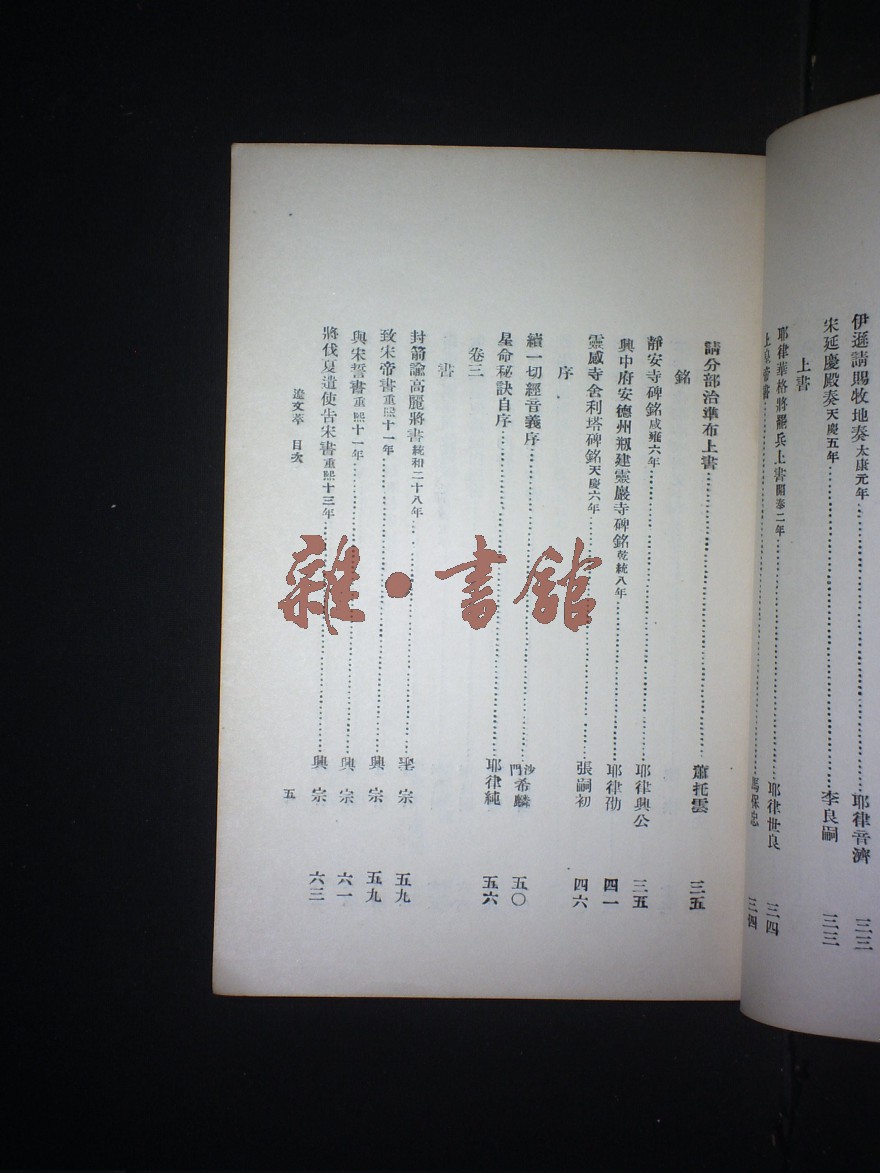 伊遜請賜牧地奏太康元年 耶律音濟 三三
宋延慶殿奏天慶五年 李良嗣 三三
上書
耶律華格將罷兵上書開泰二年 耶律世良 三四
帝書 馬保忠 三四
請分部治準布上書 蕭托雲 三五
銘
靜安寺碑銘咸雍六年 耶律興公 三五
興中府安德州剏建靈巖寺碑銘乾統八年 耶律劭 四一
靈感寺舍利塔碑銘天慶六年 張嗣初 四六
序
續一切經音義序 沙門希麟 五〇
星命秘訣自序 耶律純 五六
卷三
書
封箭諭高麗將書統和二十八年 聖宗 五九
致宋帝書重熙十一年 興宗 五九
與宋誓書重熙十一年 興宗 六一
將伐夏遣使告宋書重熙十三年 興宗 六三
遼文萃 目次 五
雜·書館